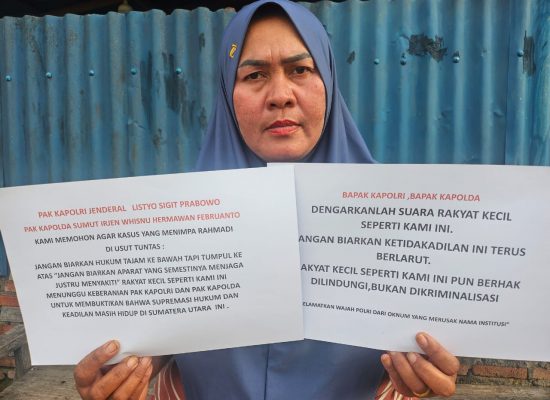 PAK KAPOLRI JENDERAL LISTYO SIGIT PRABOWO
PAK KAPOLDA SUMUT IRJEN WHISNU HERMAWAN FEBRUANTO
KAMI MEMOHON AGAR KASUS YANG MENIMPA RAHMADI
DI USUT TUNTAS :
JANGAN BIARKAN HUKUM TAJAM KE BAWAH TAPI TUMPUL KE
ATAS "JANGAN BIARKAN APARAT YANG SEMESTINYA MENJAGA
JUSTRU MENYAKITI" RAKYAT KECIL SEPERTI KAMI INI
MENUNGGU KEBERANIAN PAK KAPOLRI DAN PAK KAPOLDA
UNTUK MEMBUKTIKAN BAHWA SUPREMASI HUKUM DAN
KEADILAN MASIH HIDUP DI SUMATERA UTARA INI .
BAPAK KAPOLRI ,BAPAK KAPOLDA
DENGARKANLAH SUARA RAKYAT KECIL
SEPERTI KAMI INI.
JANGAN BIARKAN KETIDAKADILAN INI TERUS
BERLARUT.
RAKYAT KECIL SEPERTI KAMI INI PUN BERHAK
DILINDUNGI,BUKAN DIKRIMINALISASI
ELAMATKAN WAJAH POLRI DARI OKNUM YANG MERUSAK NAMA INSTITUSI"